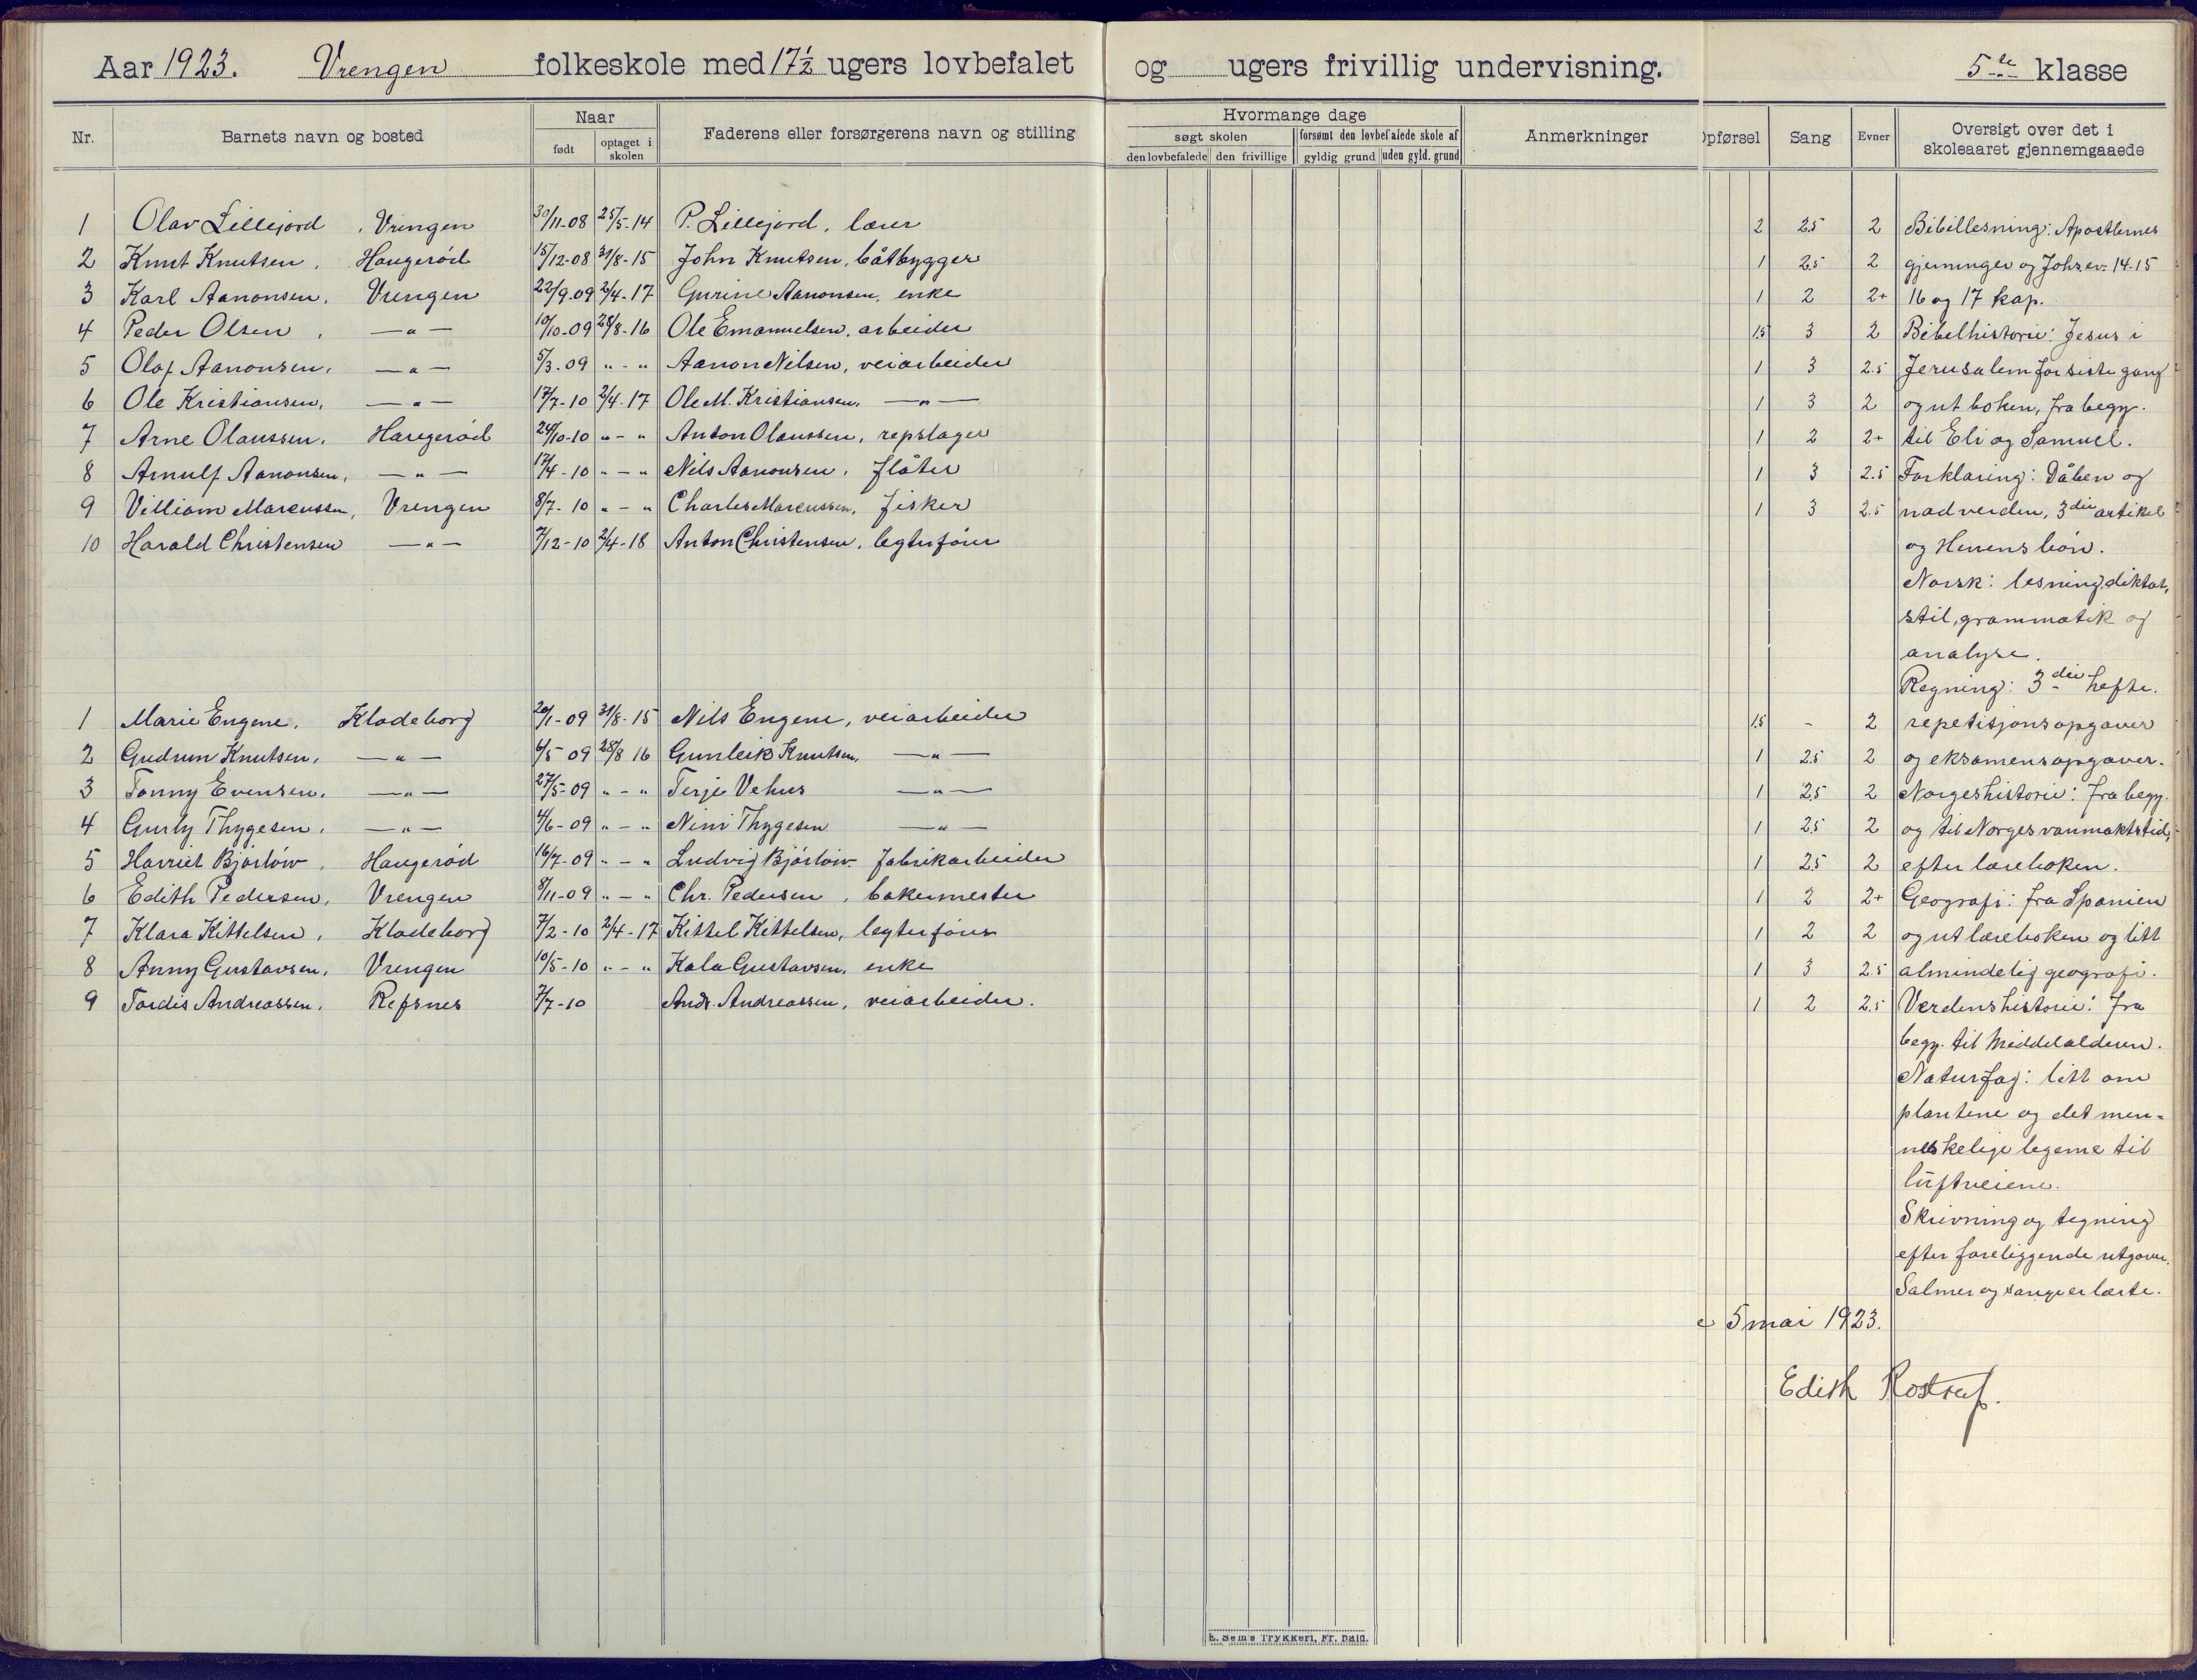 Aar 1923. Vrengen folkeskole med 17½ ugers lovbefalet og ugers frivillig undervisning. 5te klasse
Nr. Barnets navn og bosted Naar født optaget i skolen Faderens eller forsørgerens navn og stilling
Hvormange dage søgt skolen den lovbefalede den frivillige forsømt den lovbefalede skole af gyldig grund uden gyld. grund Anmerkninger
Opførsel Sang Evner Oversigt over det i skoleaaret gjennemgaaede
1 Olav Lillejord, Vrengen 30/11-08 25/5-14 P. Lillejord, lærer 2 2.5 2 Bibellesning: Apostlernes
2 Knut Knutsen, Haugerød 15/12-08 31/8-15 John Knutsen, båtbygger 1 2.5 2 gjerninger og Johs ev. 14-15
3 Karl Aanonsen, Vrengen 22/9-09 2/4-17 Gurine Aanonsen, enke 1 2 2+ 16 og 17 kap.
4 Peder Olsen, —"— 10/10-09 28/8-16 Ole Emanuelsen, arbeider 1.5 3 2 Bibelhistorie: Jesus i
5 Olaf Aanonsen, —"— 5/3-09 " - " Aanon Nilsen, veiarbeider 1 3 2.5 Jerusalem for siste gang
6 Ole Kristiansen, —"— 17/7-10 2/4-17 Ole M. Kristiansen, —"— 1 3 2 og ut boken, fra begy.
7 Arne Olaussen, Haugerød 24/10-10 " - " Anton Olaussen, repslager 1 2 2+ til Eli og Samuel.
8 Arnulf Aanonsen, —"— 17/4-10 " - " Nils Aanonsen, fløter 1 3 2.5 Forklaring: Dåben og
9 Villiam Marcussen, Vrengen 8/7-10 " - " Charles Marcussen, fisker 1 3 2.5 nadverden, 3die artikel
10 Harald Christensen —"— 7/12-10 2/4-18 Anton Christensen, legterfører og Herrens bøn.
Norsk: lesning, diktat,
stil, grammatik og
analyse.
Regning: 3die hefte.
1 Marie Engene, Klodeborg 20/1-09 31/8-15 Nils Engene, veiarbeider 1.5 - 2 repetisjonsopgaver
2 Gudrun Knutsen, —"— 6/5 09 28/8 16 Gunleik Knutsen, —"— 1 2.5 2 og eksamensopgaver.
3 Tonny Evensen, —"— 27/5-09 " - " Terje Vehus —"— 1 2.5 2 Norgeshistorie: fra begy.
4 Gurly Thygesen, —"— 4/6-09 " - " Nini Thygesen —"— 1 2.5 2 og til Norges vanmaktstid,
5 Harriet Bjørløiv, Haugerød 16/7-09 " - " Ludvig Bjørløiv fabrikarbeider 1 2.5 2 efter læreboken.
6 Edith Pedersen, Vrengen 8/11-09 " - " Chr. Pedersen, bakermester 1 2 2+ Geografi: fra Spanien
7 Klara Kittelsen, Klodeborg 7/2-10 2/4-17 Kittel Kittelsen, legterfører 1 2 2 og ut læreboken og litt
8 Anny Gustavsen, Vrengen 10/5-10 " - " Kala Gustavsen, enke 1 3 2.5 almindelig geografi.
9 Tordis Andreassen, Refsnes 7/7-10 Andr. Andreassen, veiarbeider. 1 2 2.5 Verdenshistorie: fra
begy. til Middelalderen.
Naturfag: litt om
plantene og det men-
neskelige legeme til
luftveiene.
Skrivning og tegning
efter foreliggende utgaver.
Salmer og sanger er lærte.
5 mai 1923.
Edith
E. Sem's Trykkeri, Fr. hald.